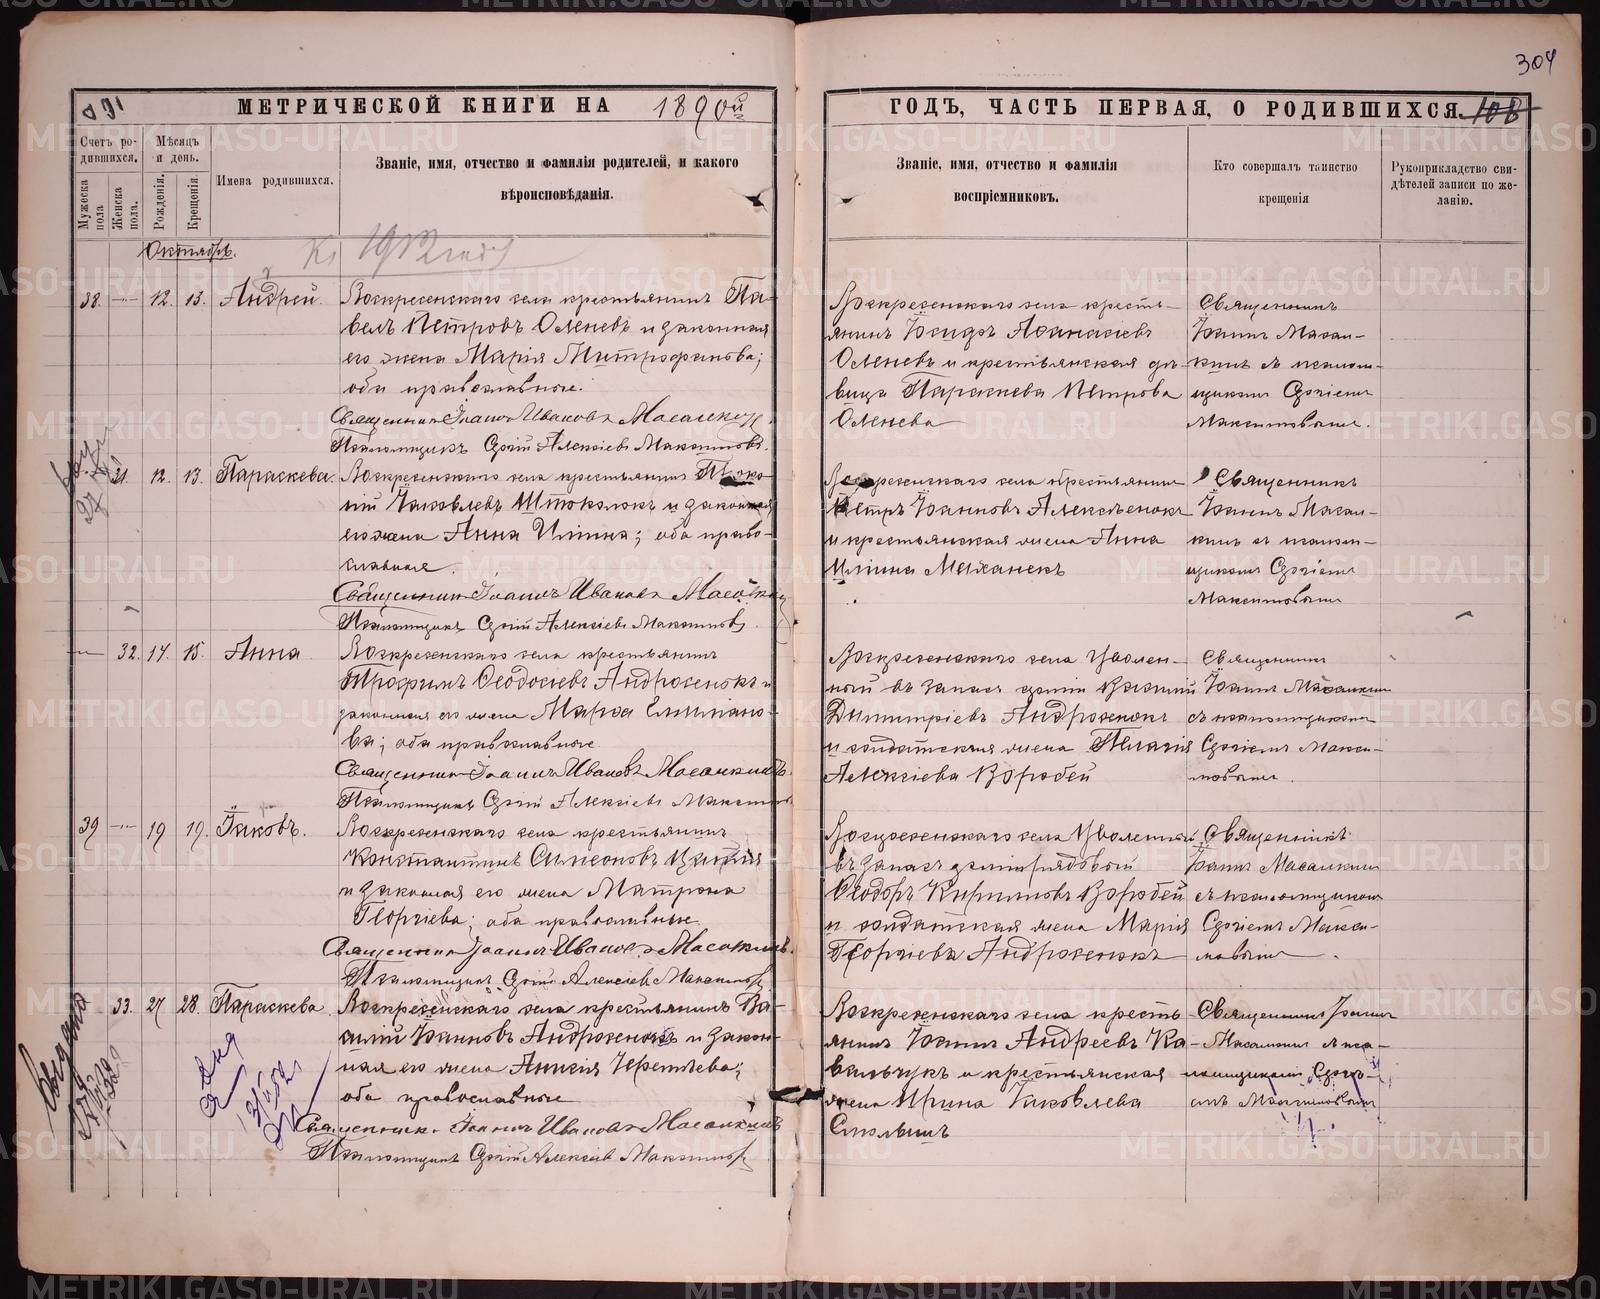 304
МЕТРИЧЕСКОЙ КНИГИ НА 1890й
ГОДЪ, ЧАСТЬ ПЕРВАЯ, О РОДИВШИХСЯ.
Счетъ ро-
дившихся.
Мужеска
пола
Женска
пола.
Мѣсяцъ
и день.
Рожденія.
Крещенія.
Имена родившихся.
Званіе, имя, отчество и фамилія родителей, и какого
вѣроисповѣданія.
Званіе, имя, отчество и фамилія
воспріемниковъ.
Кто совершалъ таинство
крещенія
Рукоприкладство сви-
дѣтелей записи по же-
ланію.
Октябрь.
38. 12. 13. Андрей.
Воскресенскаго села крестьянинъ Па-
велъ Петровъ Оленевъ и законная
его жена Марія Митрофанова;
оба православные.
Священникъ Іоаннъ Ивановъ Масалкинъ
Псаломщикъ Сергій Алексіевъ Максимовъ.
Воскресенскаго села кресть-
янинъ Исидоръ Аѳанасіевъ
Оленевъ и крестьянская дѣ-
вица Параскева Петрова
Оленева
Священникъ
Іоаннъ Масал-
кинъ съ псалом-
щикомъ Сергіемъ
Максимовымъ.
31. 12. 13. Параскева.
Воскресенскаго села крестьянинъ Проко-
пій Іаковлевъ Штоколокъ и законная
его жена Анна Ильина; оба право-
славные.
Священникъ Іоаннъ Ивановъ Масалкинъ
Псаломщикъ Сергій Алексіевъ Максимовъ.
Воскресенскаго села крестьянинъ
Петръ Іоанновъ Алексѣенокъ
и крестьянская жена Анна
Ильина Механекъ
Священникъ
Іоаннъ Масал-
кинъ съ псалом-
щикомъ Сергіемъ
Максимовымъ
32. 14. 15. Анна
Воскресенскаго села крестьянинъ
Трофимъ Ѳеодосіевъ Андросенокъ и
законная его жена Марѳа Емиліано-
ва; оба православные
Священникъ Іоаннъ Ивановъ Масалкинъ.
Псаломщикъ Сергій Алексіевъ Максимовъ
Воскресенскаго села Уволен-
ный въ запасъ арміи Василій
Димитріевъ Андросенокъ
и солдатская жена Пелагія
Алексіева Воробей
Священникъ
Іоаннъ Масалкинъ
съ псаломщикомъ
Сергіемъ Макси-
мовымъ.
39 19 19. Іаковъ.
Воскресенскаго села крестьянинъ
Константинъ Симеоновъ
и законная его жена Матрона
Георгіева; оба православные
Священникъ Іоаннъ Ивановъ Масалкинъ.
Псаломщикъ Сергій Алексіевъ Максимовъ
Воскресенскаго села Уволенный
въ запасъ арміи рядовой
Ѳеодоръ Кирилловъ Воробей
и солдатская жена Марія
Георгіева Андросенокъ
Священникъ
Іоаннъ Масалкинъ
съ псаломщикомъ
Сергіемъ Макси-
мовымъ.
33. 27 28. Параскева.
Воскресенскаго села крестьянинъ Ва-
силій Іоанновъ Андросенокъ и закон-
ная его жена Анисія Терентьева;
оба православные
Священникъ Іоаннъ Ивановъ Масалкинъ
Псаломщикъ Сергій Алексіевъ Максимовъ
Воскресенскаго села кресть-
янинъ Іоаннъ Андреевъ Ко-
вальчукъ и крестьянская
жена Ирина Іаковлева
Священникъ Іоаннъ
Масалкинъ съ пса-
ломщикомъ Сергі-
емъ Максимовымъ
METRIKI.GASO-URAL.RU